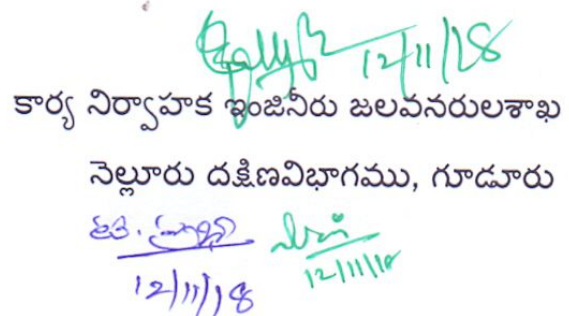 12/11/18
కార్య నిర్వాహక ఇంజినీరు జలవనరులశాఖ
నెల్లూరు దక్షిణవిభాగము, గూడూరు
12/11/18 12/11/18